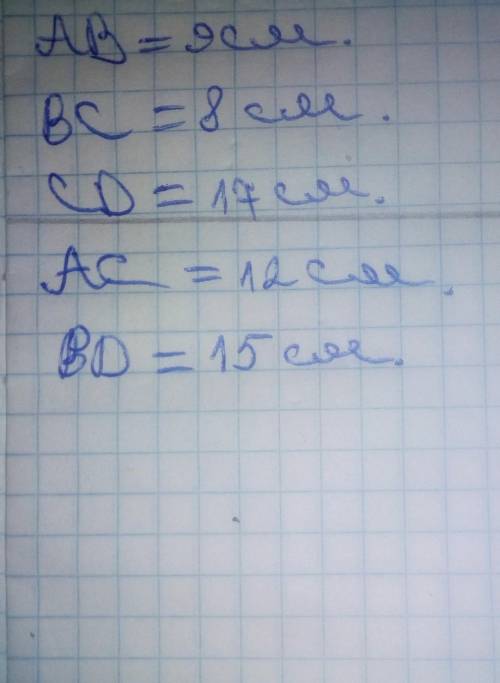 AB = 9 см.
BC = 8 см.
CD = 17 см.
AC = 12 см.
BD = 15 см.